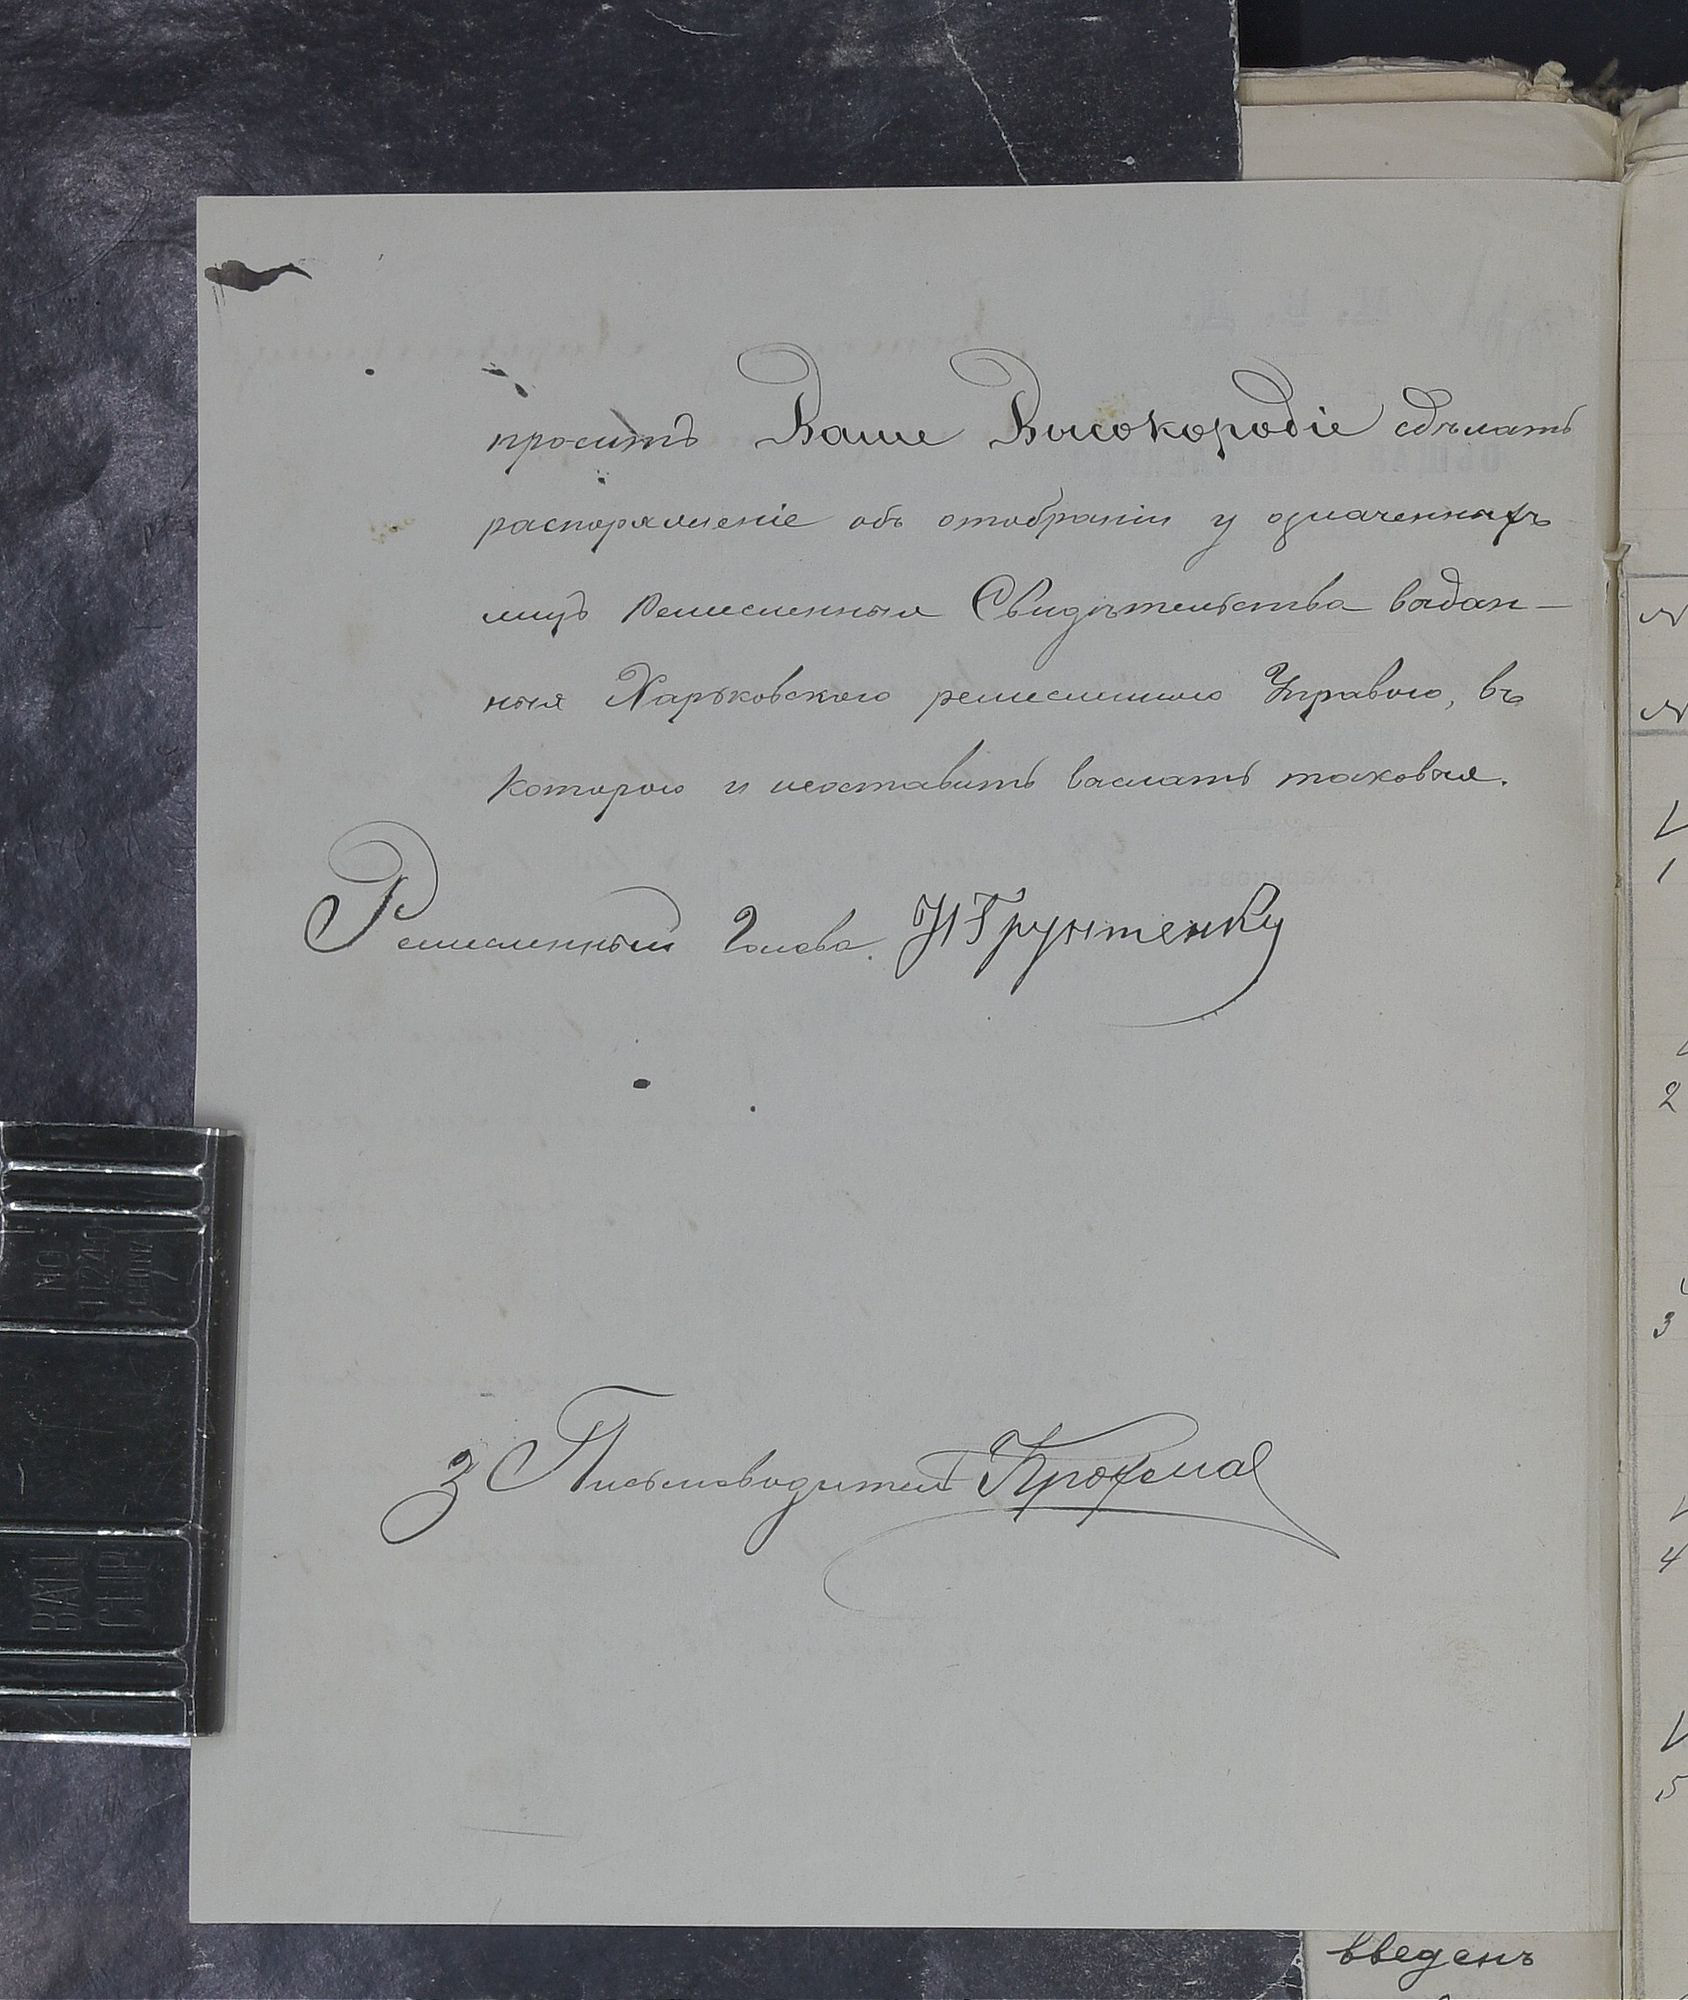 проситъ Ваше Высокородіе сдѣлать
распоряженіе объ отобраніи у означенныхъ
лицъ Ремесленныя Свидѣтельства выдан-
ныя Харьковскою ремесленною Управою, въ
которою и неоставить выслать таковыя.
Ремесленный Голова. И Грунтенку
З Письмоводителя
№
№
1
2
3
4
5
NO
11240
BALL
CLIP
введенъ